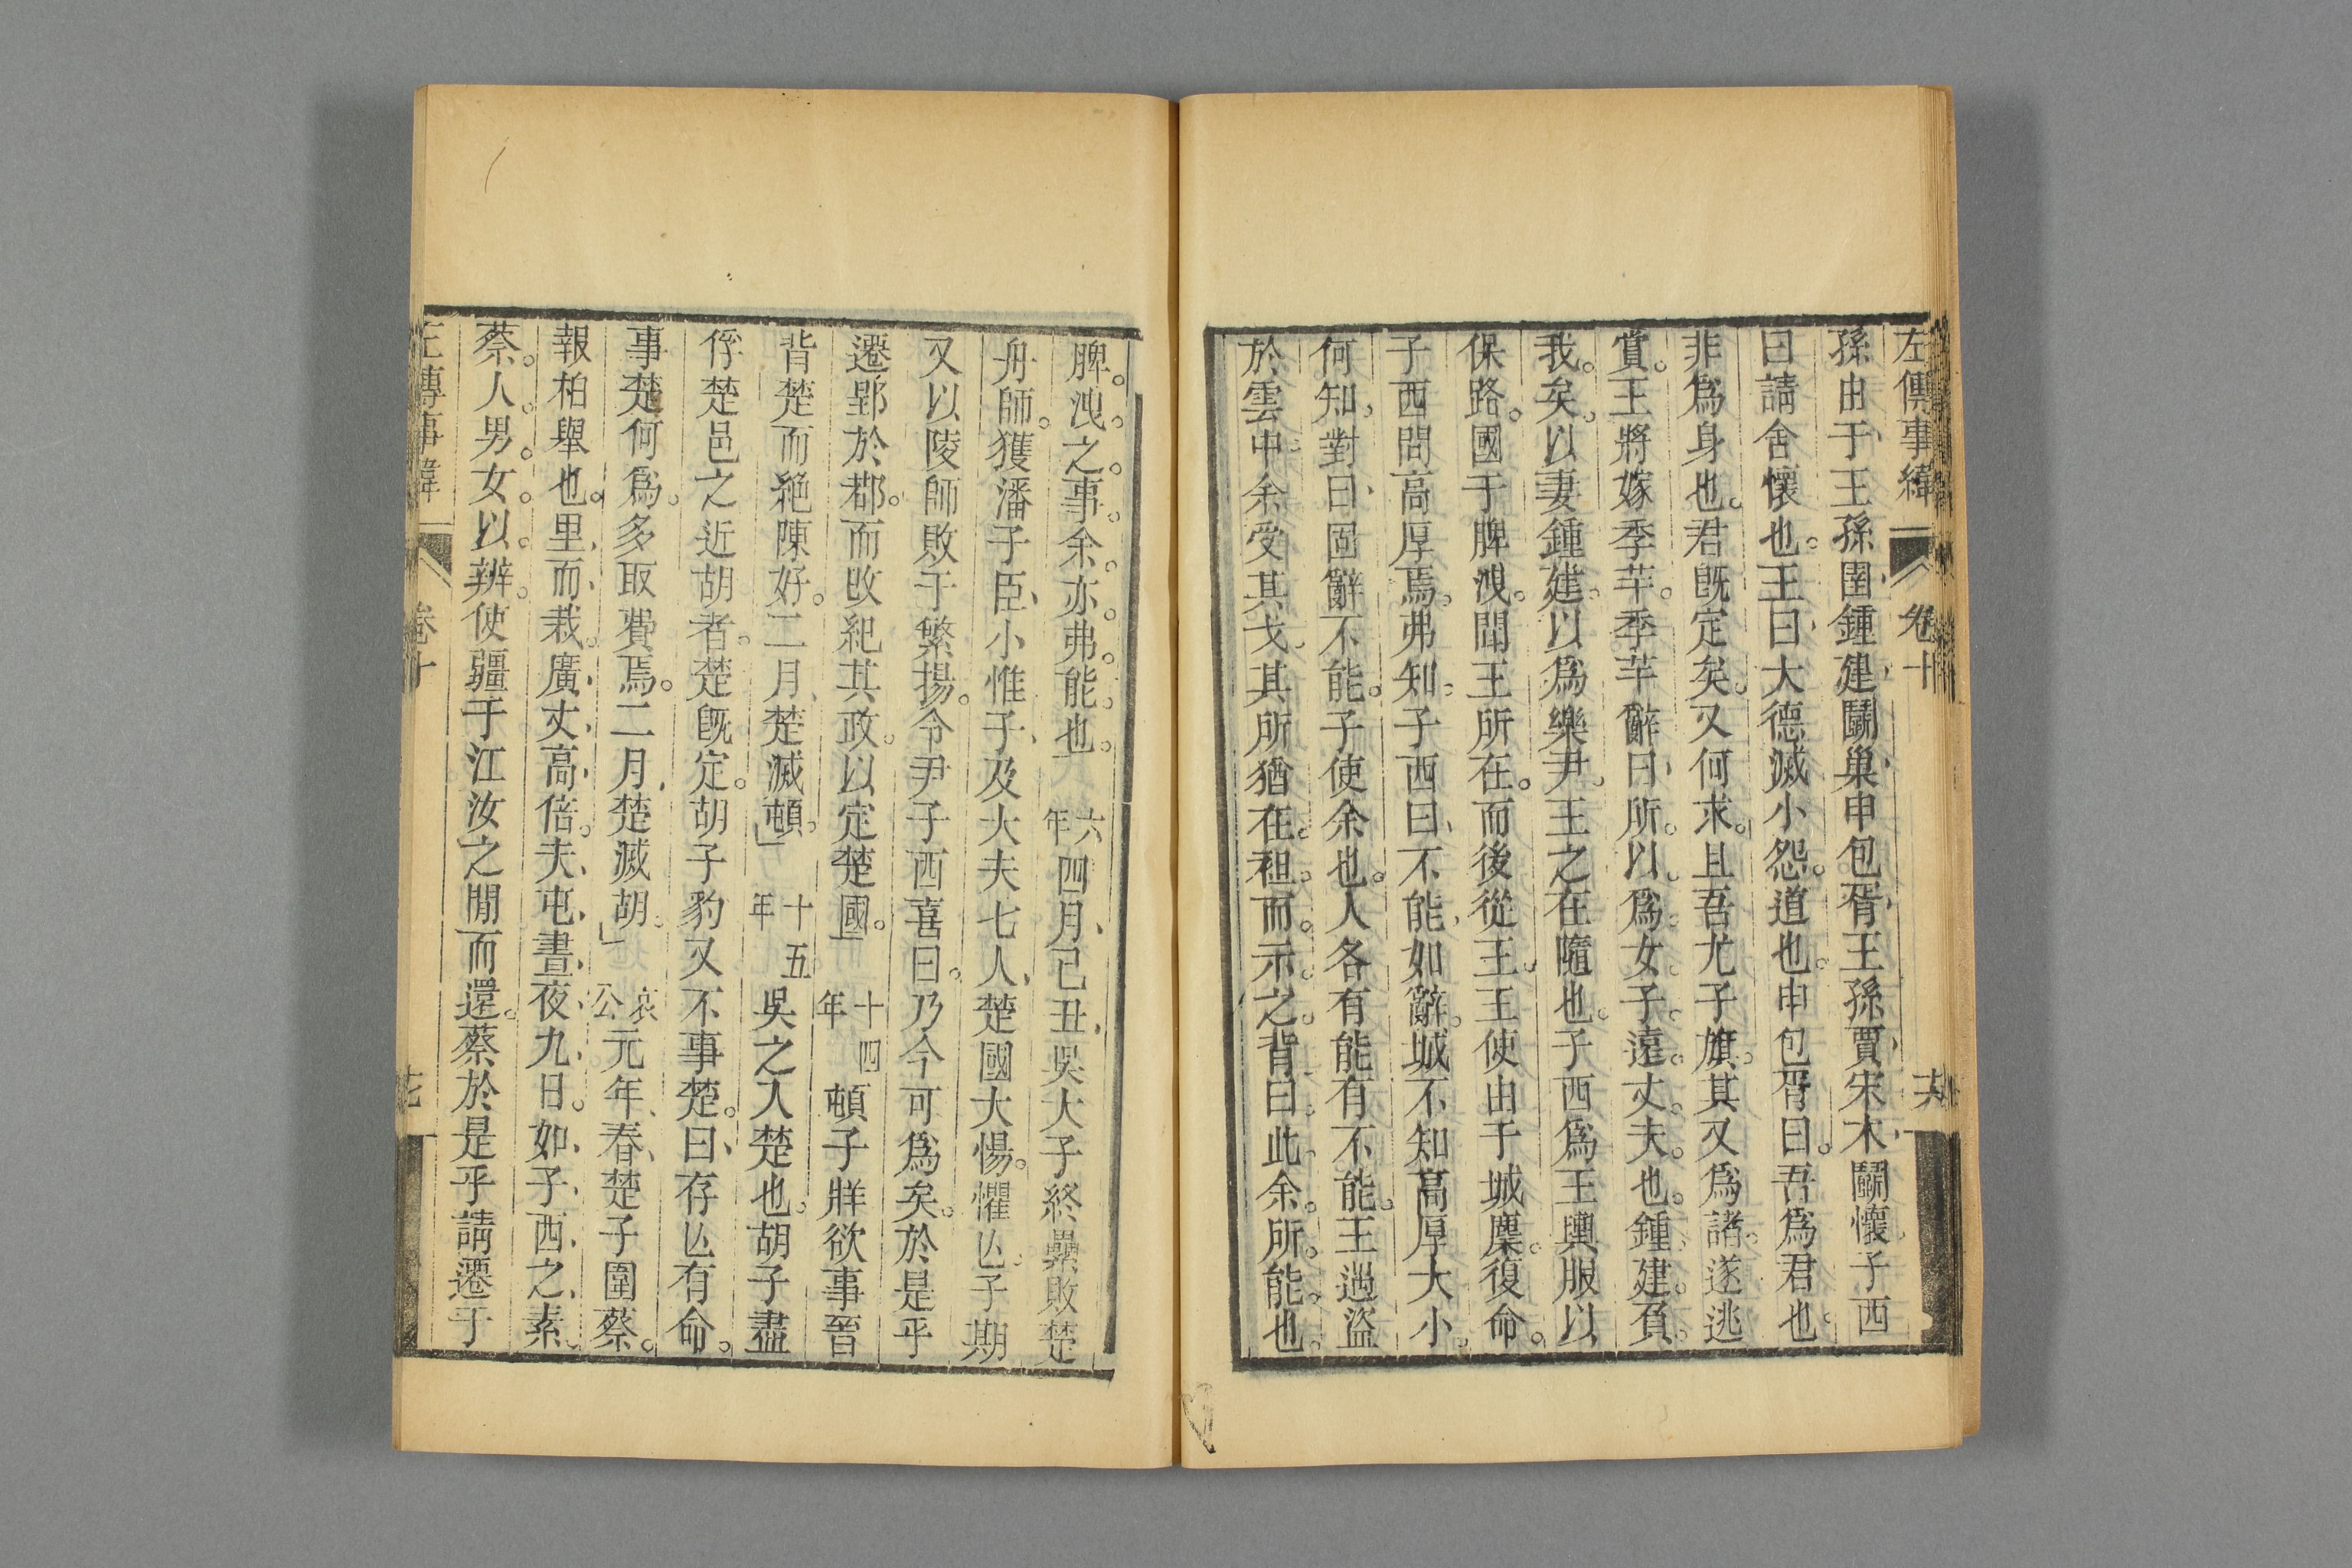 左傳事緯 卷十
孫由于王孫圉鍾建鬬巢申包胥王孫賈宋木鬬懷子西
曰請舍懷也王曰大德滅小怨道也申包胥曰吾爲君也
非爲身也君旣定矣又何求且吾尤子旗其又爲諸遂逃
賞王將嫁季芊季芊辭曰所以爲女子遠丈夫也鍾建負
我矣以妻鍾建以爲樂尹王之在隨也子西爲王輿服以
保路國于脾洩聞王所在而後從王王使由于城麇復命
子西問高厚焉弗知子西曰不能如辭城不知高厚大小
何知對曰固辭不能子使余也人各有能有不能王遇盜
於雲中余受其戈其所猶在袒而示之背曰此余所能也
脾洩之事余亦弗能也 六年四月己丑吳大子終纍敗楚
舟師獲潘子臣小惟子及大夫七人楚國大惕懼亾子期
又以陵師敗于繁揚令尹子西喜曰乃今可爲矣於是乎
遷郢於鄀而改紀其政以定楚國 十四年頓子牂欲事晉
背楚而絕陳好二月楚滅頓 十五年吳之入楚也胡子盡
俘楚邑之近胡者楚旣定胡子豹又不事楚曰存亾有命
事楚何爲多取費焉二月楚滅胡 哀公元年春楚子圍蔡
報柏舉也里而栽廣丈高倍夫屯晝夜九日如子西之素
蔡人男女以辨使疆于江汝之閒而還蔡於是乎請遷于
左傳事緯 卷十